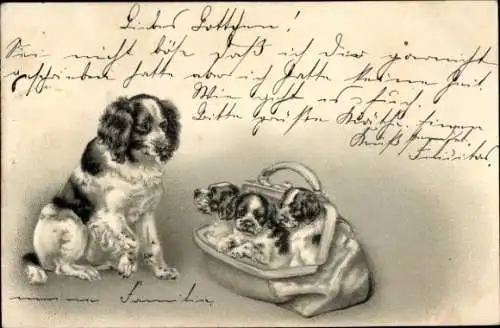 Liebes Gottchen!
Sei nicht böse daß ich Dir garnicht
geschrieben hatte aber ich hatte keine Zeit.
Wie geht es Euch.
Bitte grüßen Käthe. Einen
Kuß
meine Familie